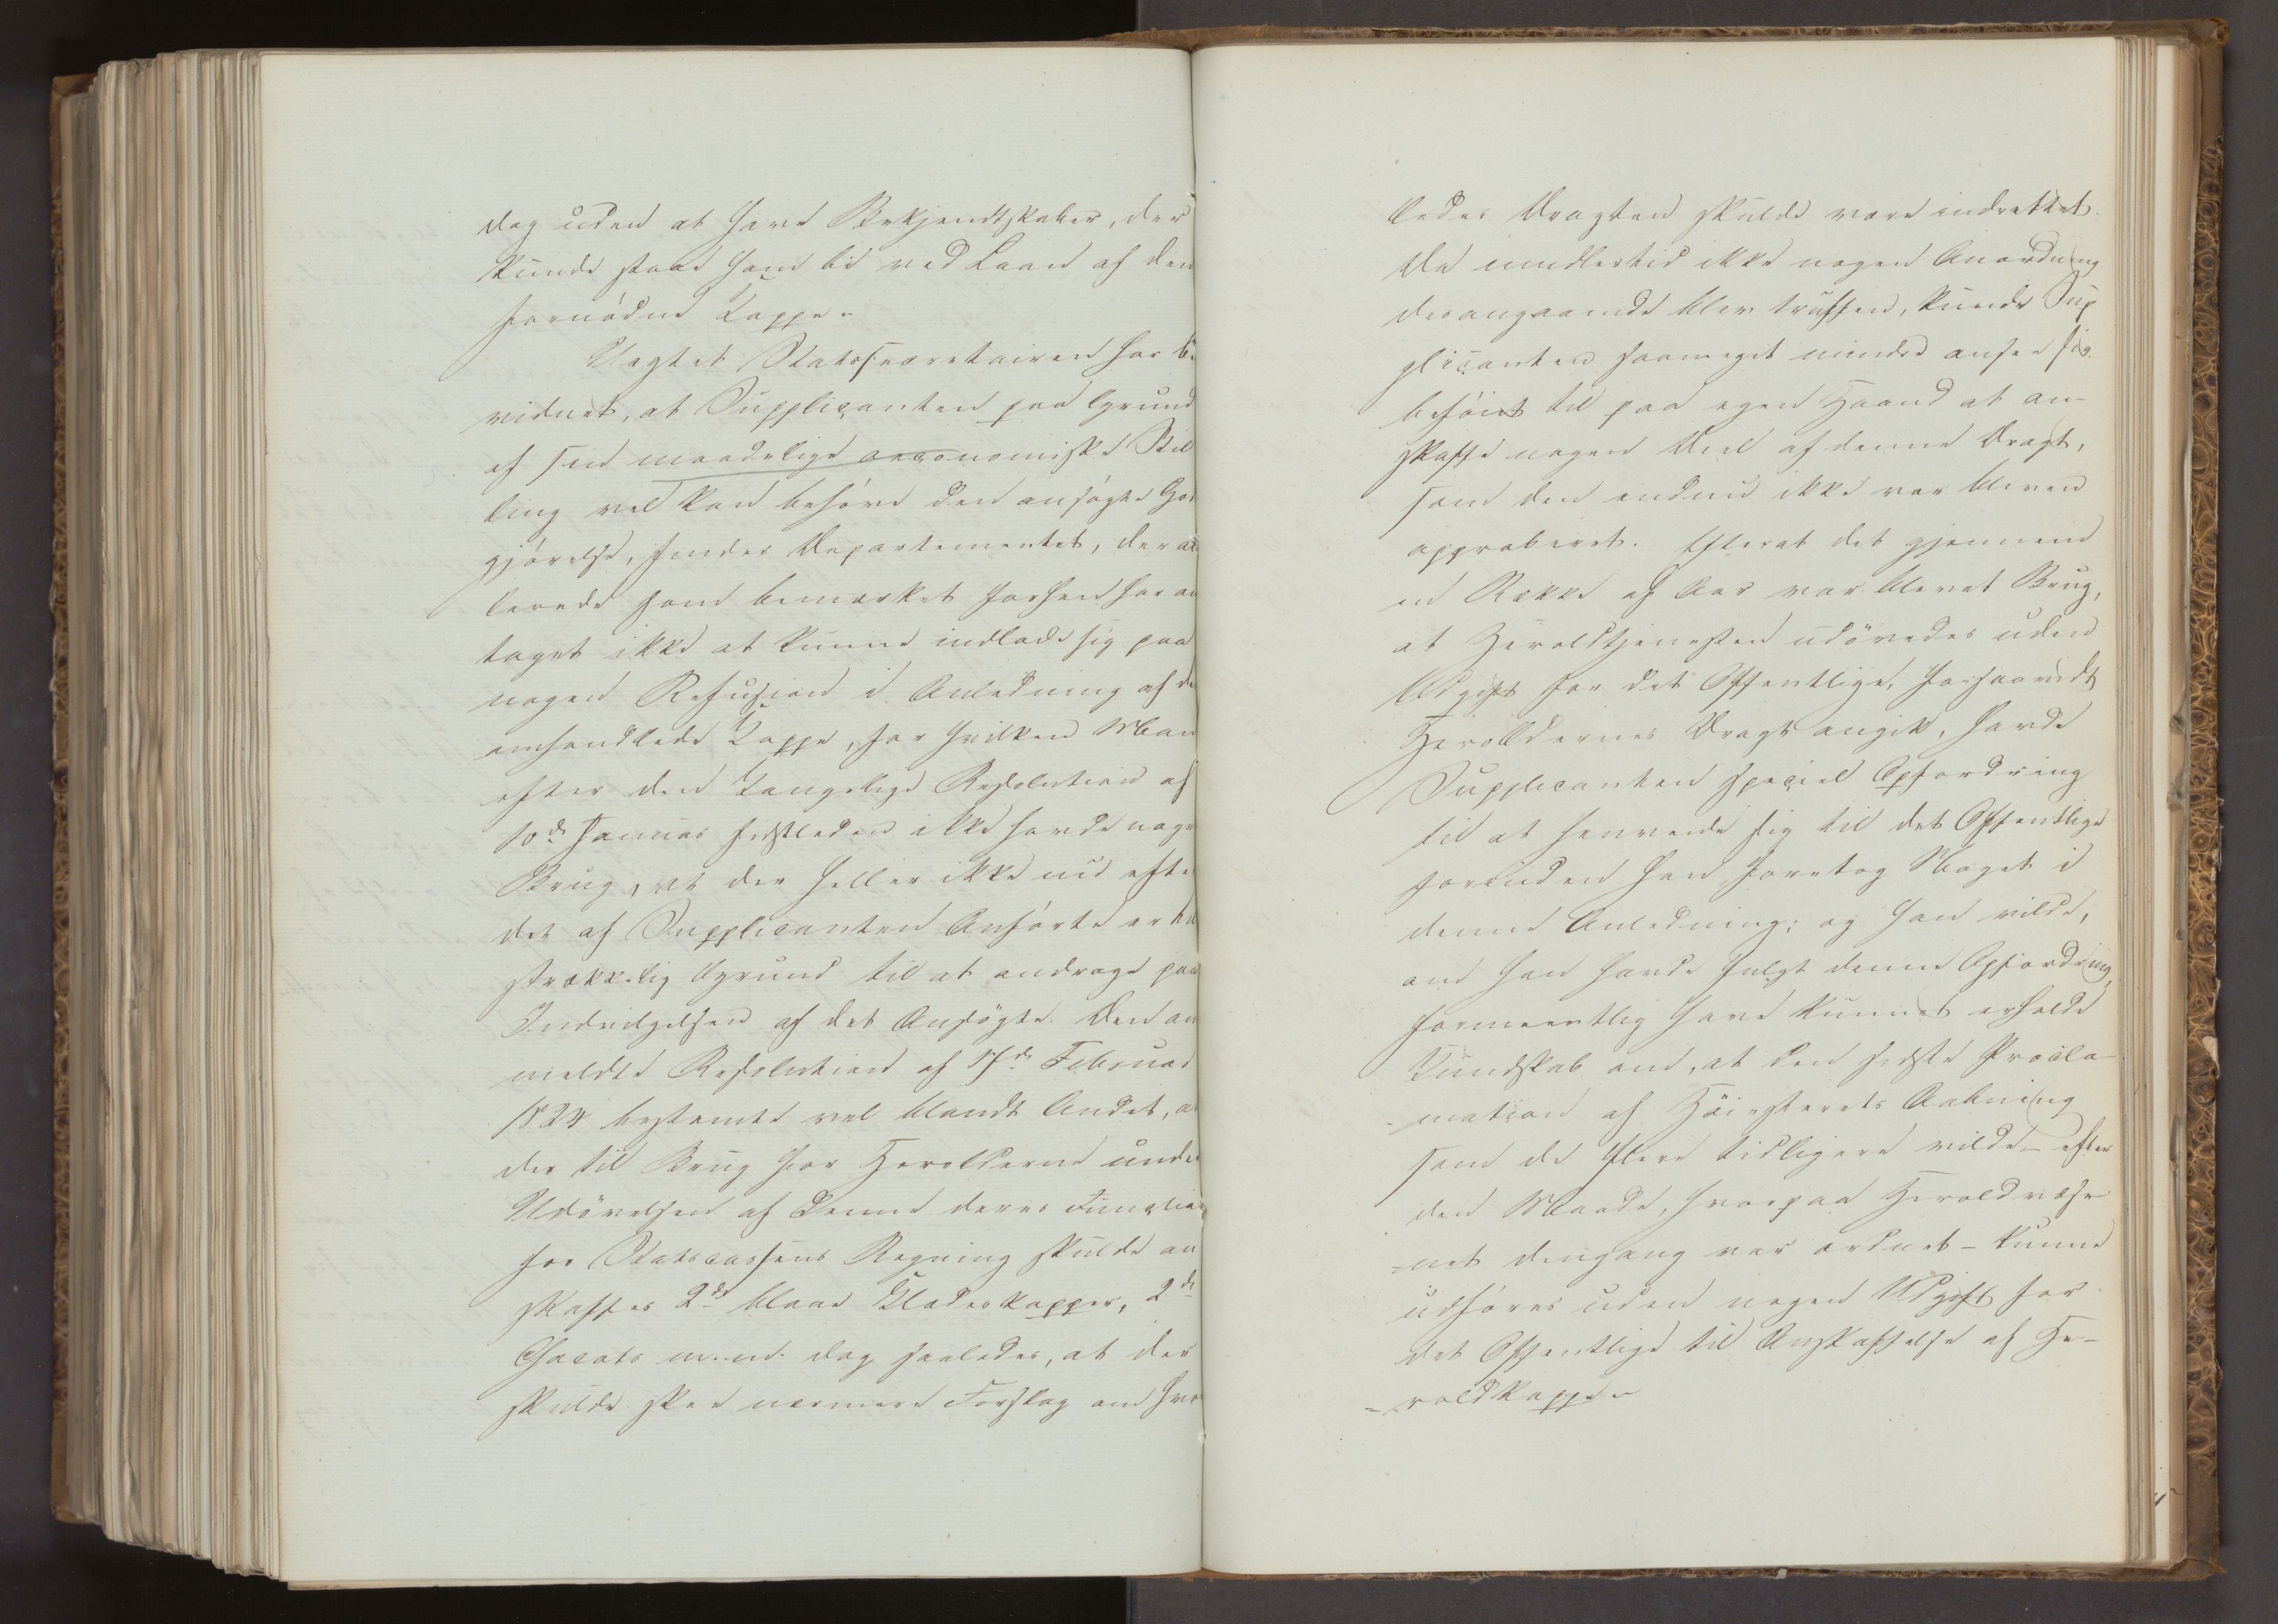 dog uden at have Bekjendtskaber, der
kunde staae ham bi ved Laan af den
fornødne Kappe.
Uagtet Statssecretairen har be
vidnet, at Supplicanten paa Grund
af sin maadelige oeconomiske Stil
ling vel kan behøve den ansøgte God
gjørelse, finder Departementet, der al
lerede som bemærket forhen har an
taget ikke at kunne indlade sig paa
nogen Refusion i Anledning af den
omhandlede Kappe, for hvilken Man
efter den Kongelige Resolution af
10de Januar sidstleden ikke havde nogen
Brug, at der heller ikke nu efter
det af Supplicanten Anførte er til
strækkelig Grund til at andrage paa
Indvilgelsen af det Ansøgte. Den an
meldte Resolution af 17de Februar
1824 bestemte vel blandt Andet, at
der til Brug for Herolderne under
Udøvelsen af denne deres Function
for Statscassens Regning skulde an
skaffes 2de blaae Klædeskapper, 2de
Chacots m.m. dog saaledes, at der
skulde skee nærmere Forslag om hvor
ledes Dragten skulde være indrettet.
Da imidlertid ikke nogen Anordning
desangaaende blev truffen, kunde Sup
plicanten saameget mindre ansee sig
beføiet til paa egen Haand at an-
skaffe nogen Deel af denne Dragt,
som den endnu ikke var bleven
approberet. Efterat det gjennem
en Række af Aar var blevet Brug,
at Heroldtjenesten udøvedes uden
Udgift for det Offentlige, forsaavidt
Heroldernes Dragt angik, havde
Supplicanten speciel Opfordring
til at henvende sig til det Offentlige
forinden han foretog Noget i
denne Anledning; og han vilde,
om han havde fulgt denne Opfordring,
formeentlig have kunnet erholde
Kundskab om, at den sidste Procla-
-mation af Høiesterets Aabning
som de flere tidligere vilde - efter
den Maade, hvorpaa Heroldvæse
=net dengang var ordnet - kunne
udføres uden nogen Udgift for
det Offentlige til Anskaffelse af He-
=roldkappe.